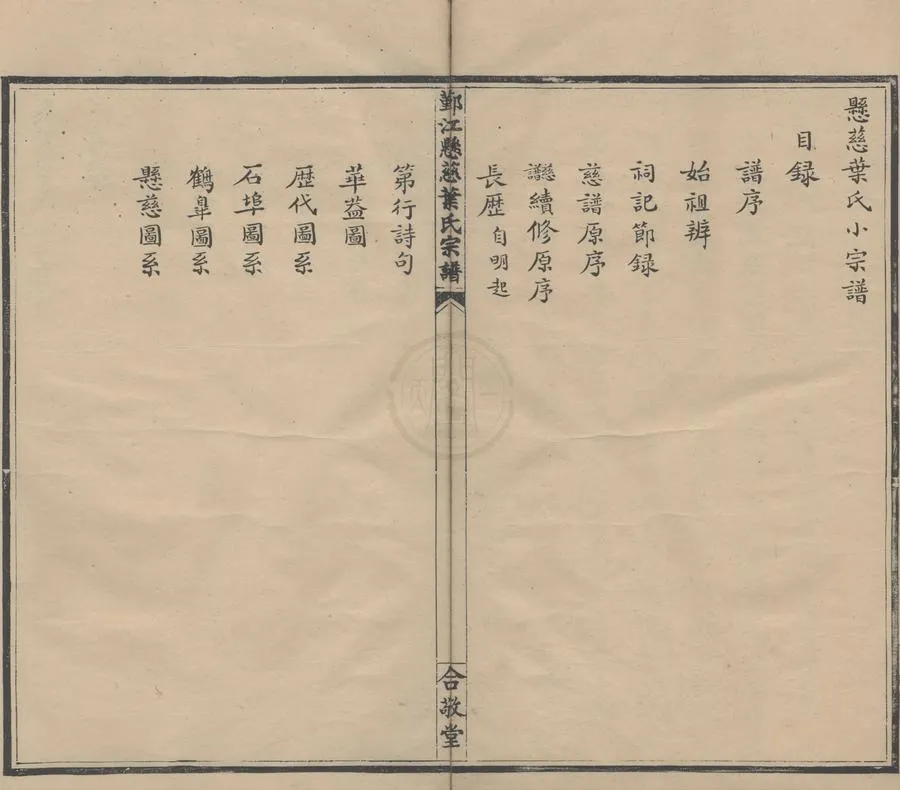 懸慈葉氏小宗譜
目録
譜序
始祖辨
祠記節録
慈譜原序
續修原序
長歴自明起
鄞江懸慈葉氏宗譜
合敬堂
第行詩句
華葢圖
歴代圖系
石埠圖系
鶴臯圖系
懸慈圖系